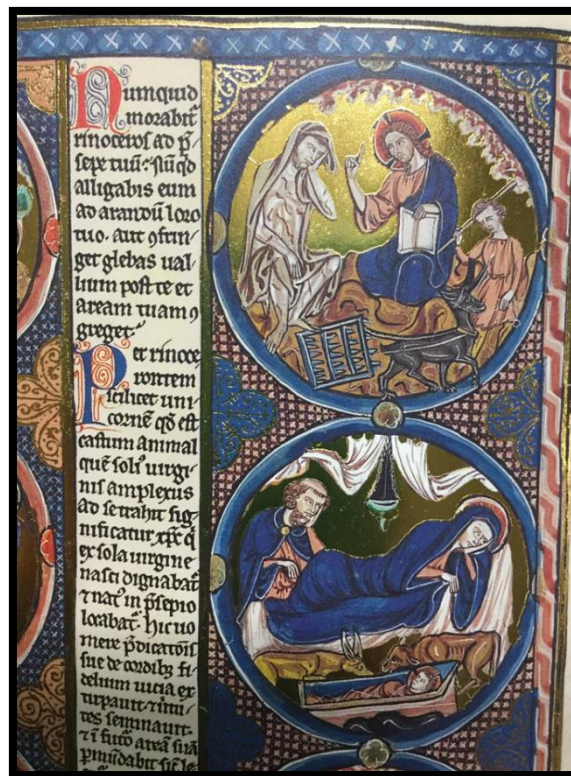 Numquid
morabit̄
rinoceros ad p̄
sepe tuū· nūqd
alligabis eum
ad arandū loro
tuo· aut ꝯfrin
get glebas ual
lium post te et
aream tuam ꝯ
greget·
Per rinoce
rontem
scilicet uni
cornē qd̄ est
castum animal
quē soli' uirgi
nis amplexus
ad se trahit sig
nificatur xp̄c q̄
ex sola uirgine
nasci dignabat̄
⁊ nat' in p̄sepio
locabat̄· hic uo
mere p̄dicatōis
sue de cordib; fi
delium uicia ex
tirpauit· ⁊ uirtu
tes seminauit·
⁊ ī futō areā suā